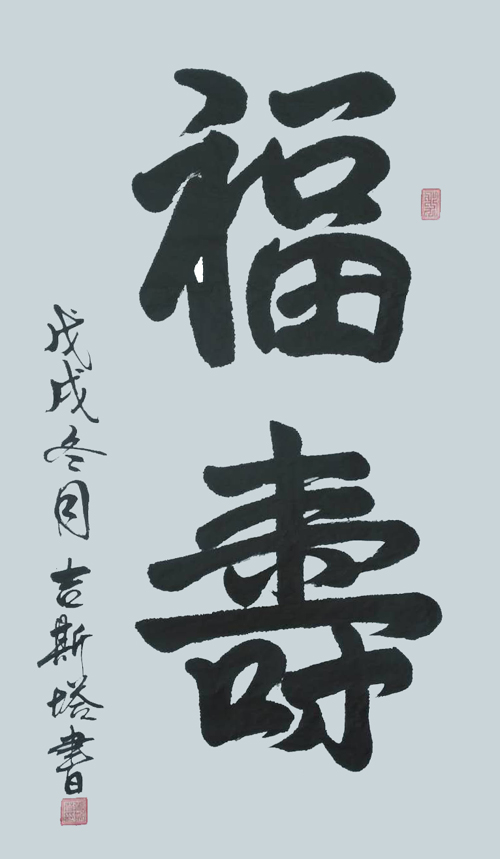 福壽
戊戌冬月吉斯塔書